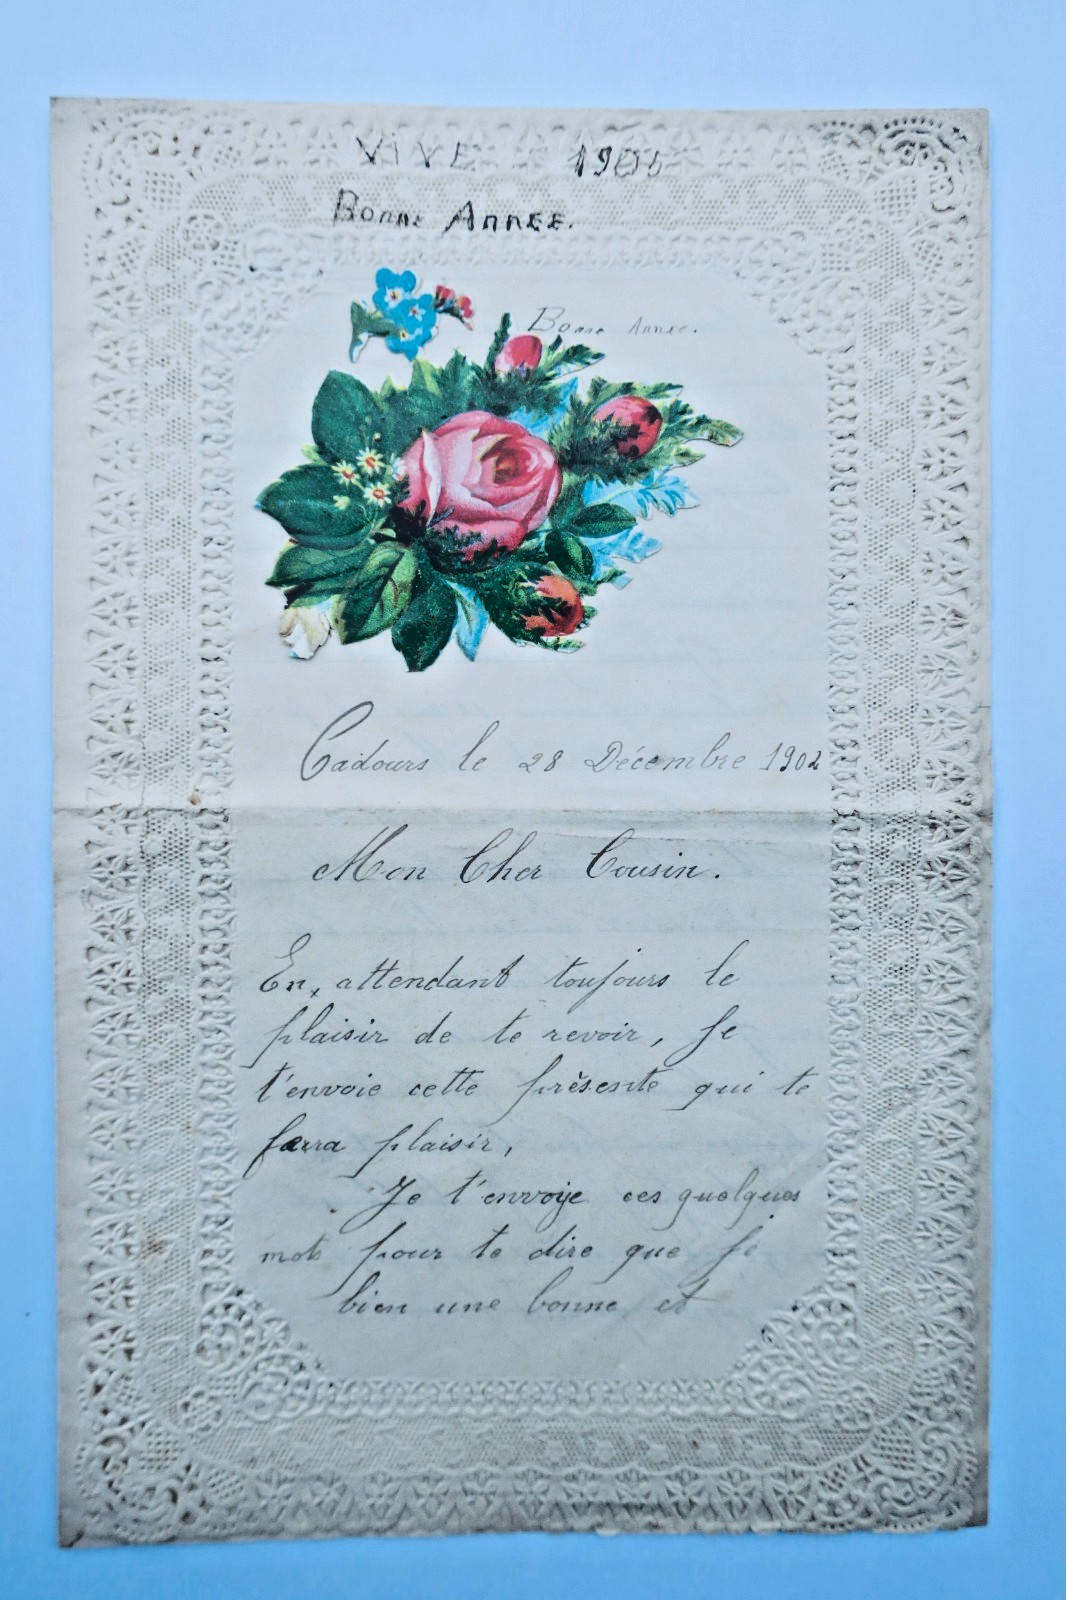 VIVE 1905
Bonne Année.
Bonne Année.
Cadours le 28 Décembre 1904
Mon Cher Cousin.
En, attendant toujours le
plaisir de te revoir, je
t'envoie cette présente qui te
farra plaisir,
Je t'envoije ces quelques
mots pour te dire que je
bien une bonne et